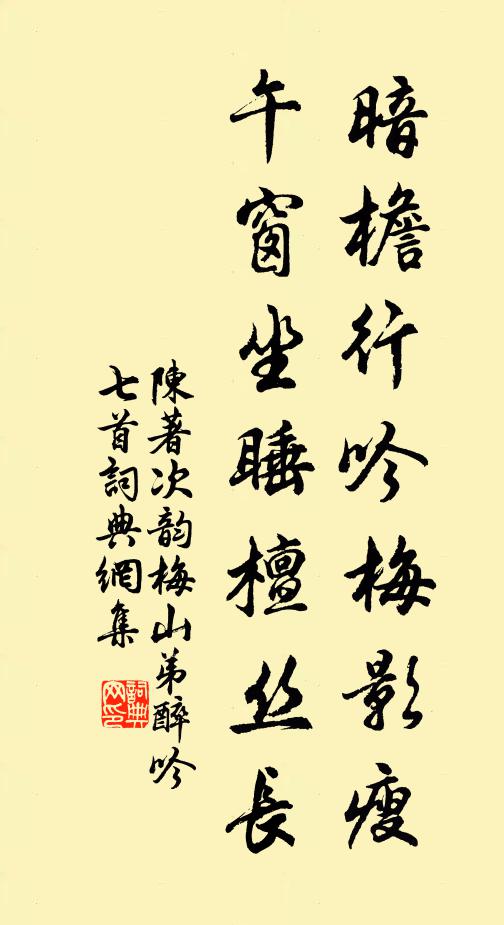 暗檐行吟梅影瘦
午窗坐睡檀丝長
陳著次韵梅山弟醉吟
七首詞典網集
詞典
网印